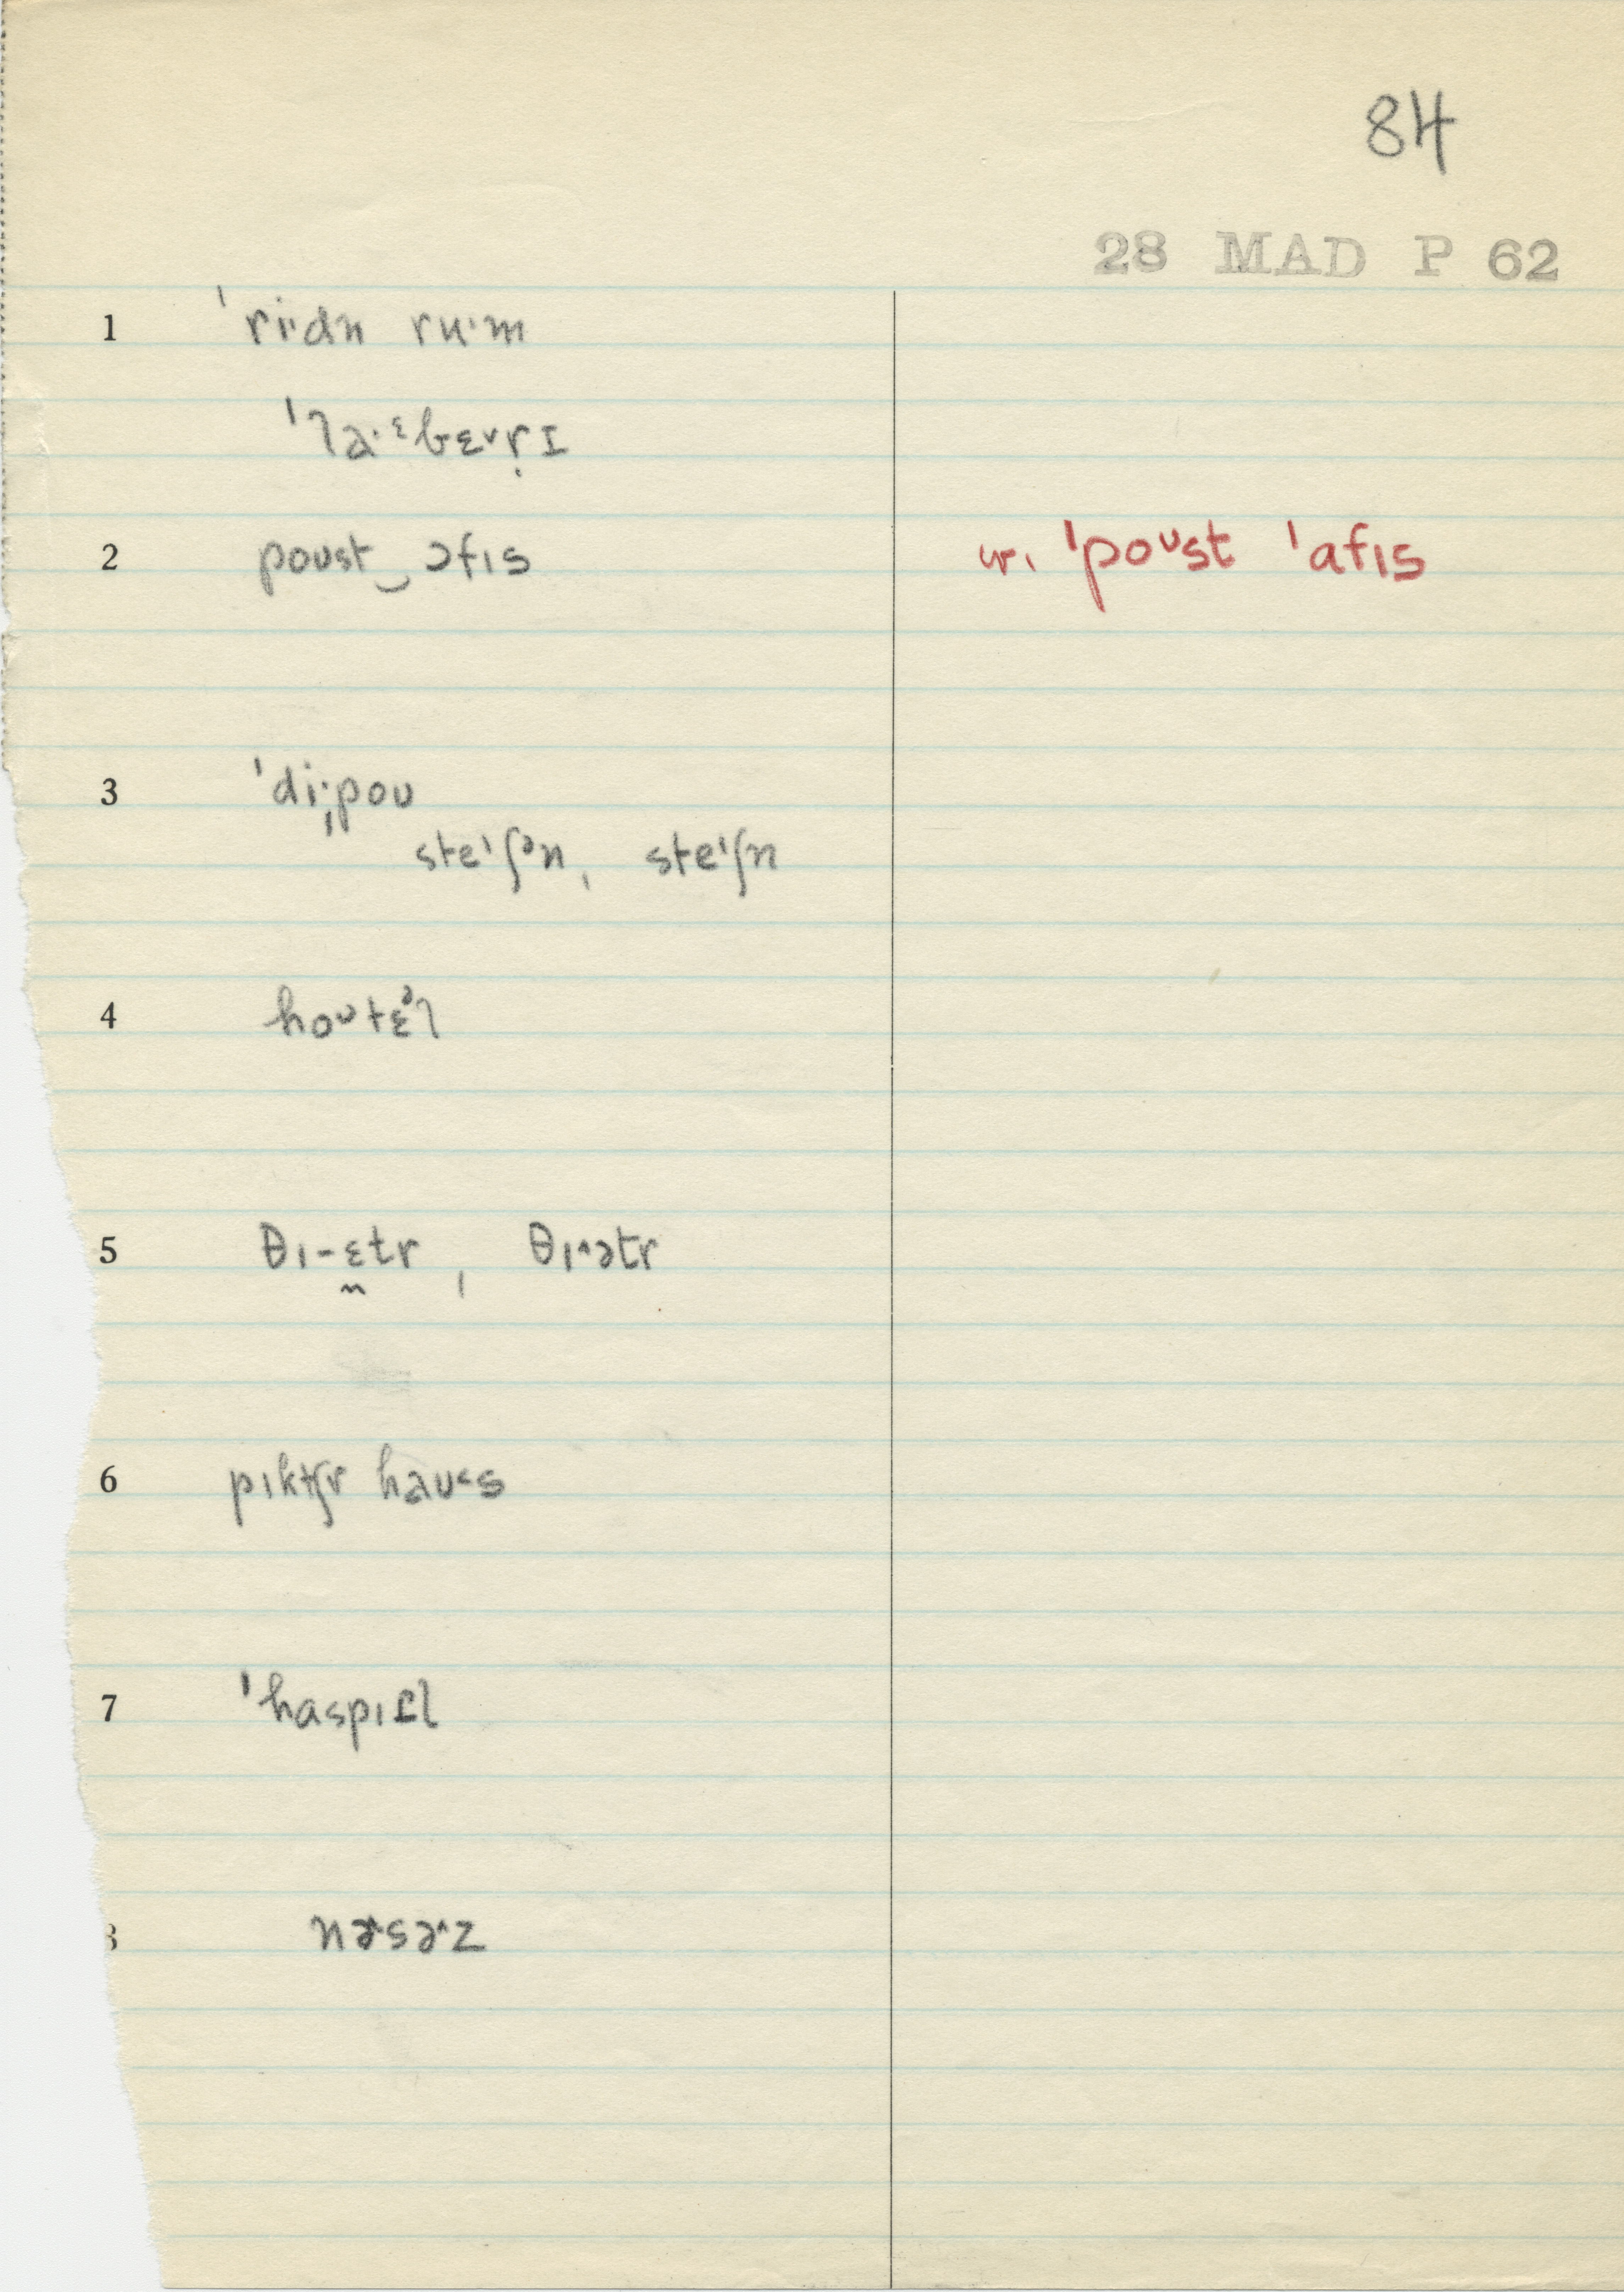 84
28 MAD P 62
1 ˈriˑdn ruˑm
ˈlaˑᵋbɛ˅ṛɪ
2 poust‿ɔfɪs w. ˈpoᶷst ˈafɪs
3 ˈdiˑˌpoʊ
steˈʃᵊn, steˈʃn
4 hoᶷtɛᵊl
5 θɪ-ɛ̰tr, θɪ˄ətr
6 pɪktʃr haʊ˂s
7 ˈhaspɪɾl
8 nɚ˄sɚ˄z